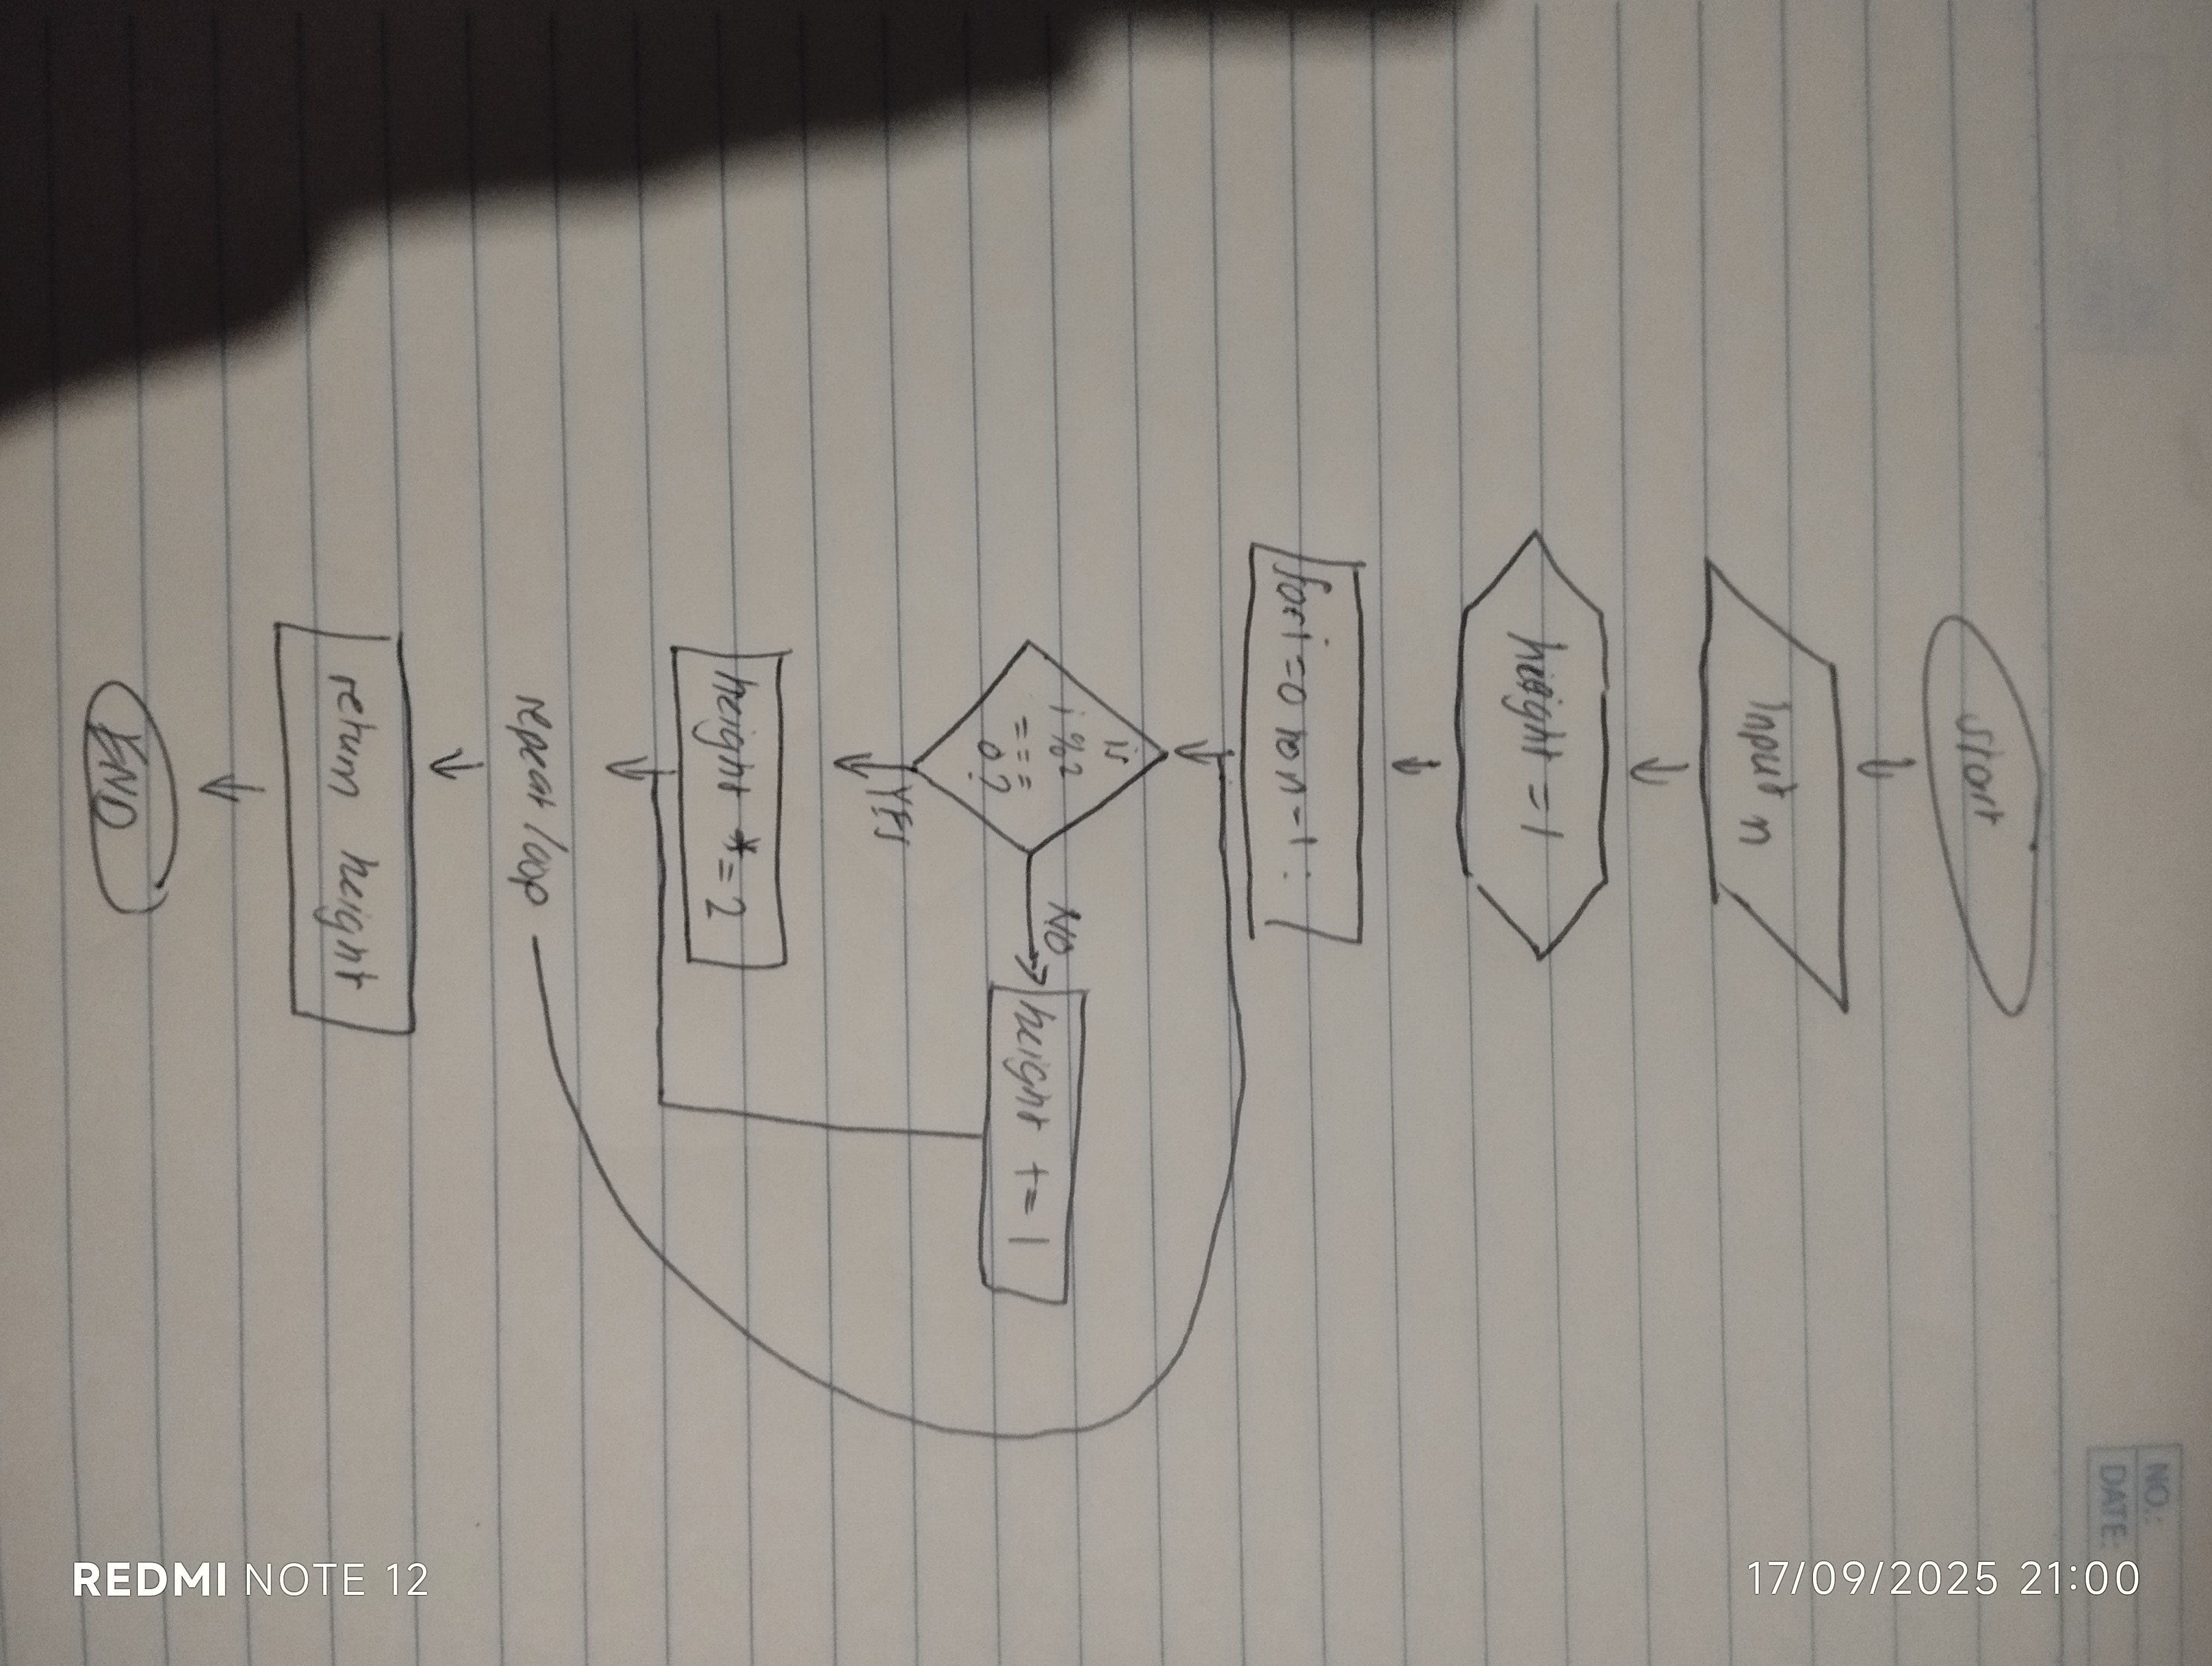 NO.:
DATE:
start
input n
height = 1
for i = 0 to n-1 :
is
i % 2
===
0?
NO
height += 1
YES
height *= 2
repeat loop
return height
END
REDMI NOTE 12
17/09/2025 21:00